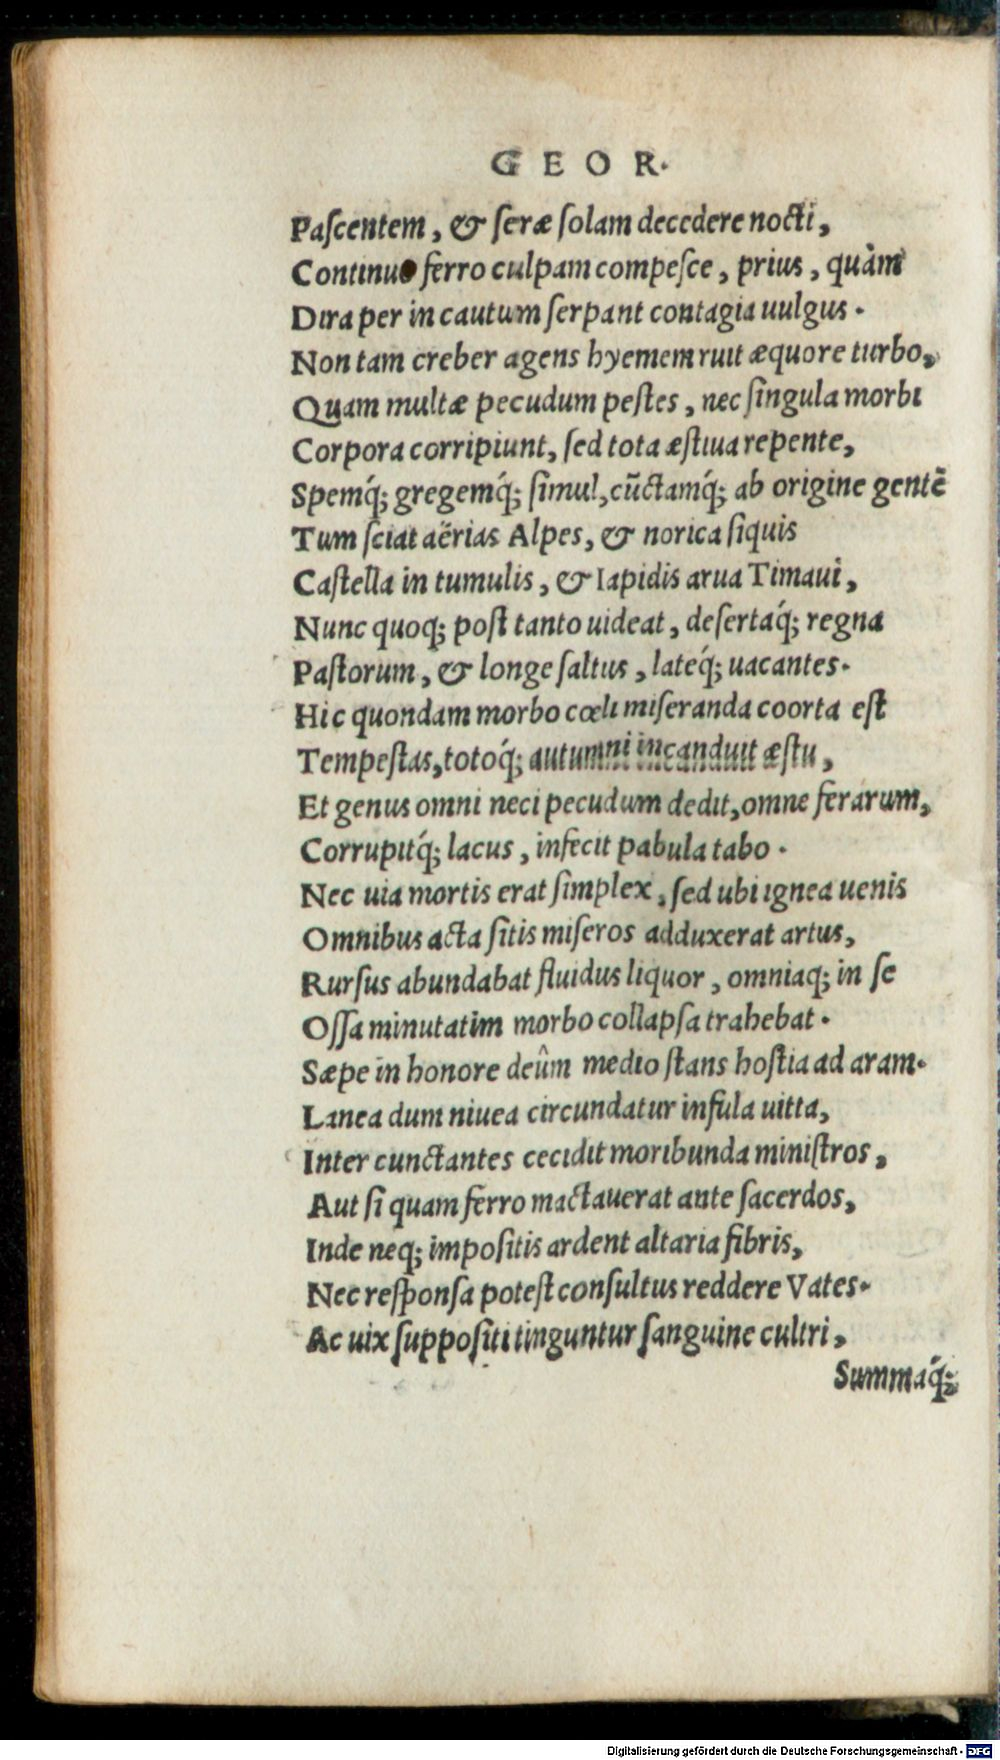 GEOR.
Paſcentem, & ſeræ ſolam decedere nocti,
Continuo ferro culpam compeſce, prius, quàm
Dira per incautum ſerpant contagia uulgus.
Non tam creber agens hyemem ruit æquore turbo,
Quam multæ pecudum peſtes, nec ſingula morbi
Corpora corripiunt, ſed tota æſtiua repente,
Spemq́; gregemq́; ſimul, cũctamq́; ab origine gentẽ
Tum ſciat aërias Alpes, & norica ſiquis
Caſtella in tumulis, & Iapidis arua Timaui,
Nunc quoq; poſt tanto uideat, deſertaq́; regna
Paſtorum, & longe ſaltus, lateq́; uacantes.
Hic quondam morbo cœli miſeranda coorta eſt
Tempeſtas, totoq́; autumni incanduit æſtu,
Et genus omni neci pecudum dedit, omne ferarum,
Corrupitq́; lacus, infecit pabula tabo.
Nec uia mortis erat ſimplex, ſed ubi ignea uenis
Omnibus acta ſitis miſeros adduxerat artus,
Rurſus abundabat fluidus liquor, omniaq; in ſe
Oſſa minutatim morbo collapſa trahebat.
Sæpe in honore deûm medio ſtans hoſtia ad aram.
Lanea dum niuea circundatur infula uitta,
Inter cunctantes cecidit moribunda miniſtros,
Aut ſi quam ferro mactauerat ante ſacerdos,
Inde neq; impoſitis ardent altaria fibris,
Nec reſponſa poteſt conſultus reddere Vates.
Ac uix ſuppoſiti tinguntur ſanguine cultri,
Summaq́;
Digitalisierung gefördert durch die Deutsche Forschungsgemeinschaft - DFG